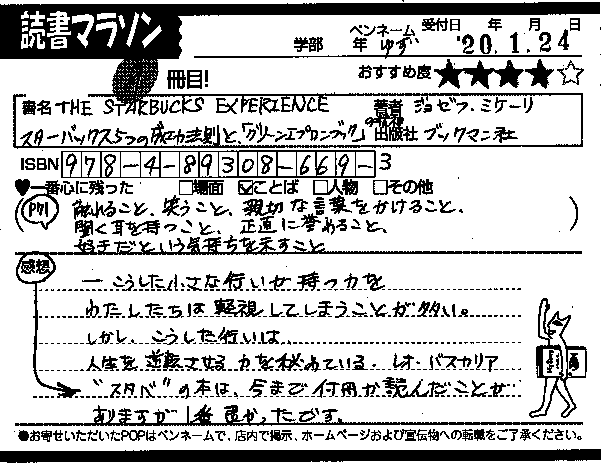 読書マラソン
学部 年 ペンネーム ゆず 受付日 年 月 日
'20.1.24
冊目!
おすすめ度 ★★★★☆
書名 THE STARBUCKS EXPERIENCE 著者 ジョゼフ・ミケーリ
スターバックス5つの成功法則と、「グリーンエプロンブック」の精神 出版社 ブックマン社
ISBN 978-4-89308-669-3
♥一番心に残った □場面 ☑ことば □人物 □その他
P71
触れること、笑うこと、親切な言葉をかけること、
聞く耳を持つこと、正直に誉めること、
好きだという気持ちを示すこと
感想
― こうした小さな行いが持つ力を
わたしたちは軽視してしまうことが多い。
しかし、こうした行いは、
人生を逆転させる力を秘めている。レオ・バスカリア
"スタバ"の本は、今まで何冊か読んだことが
ありますが1番良かったです。
●お寄せいただいたPOPはペンネームで、店内で掲示、ホームページおよび宣伝物への転載をご了承ください。